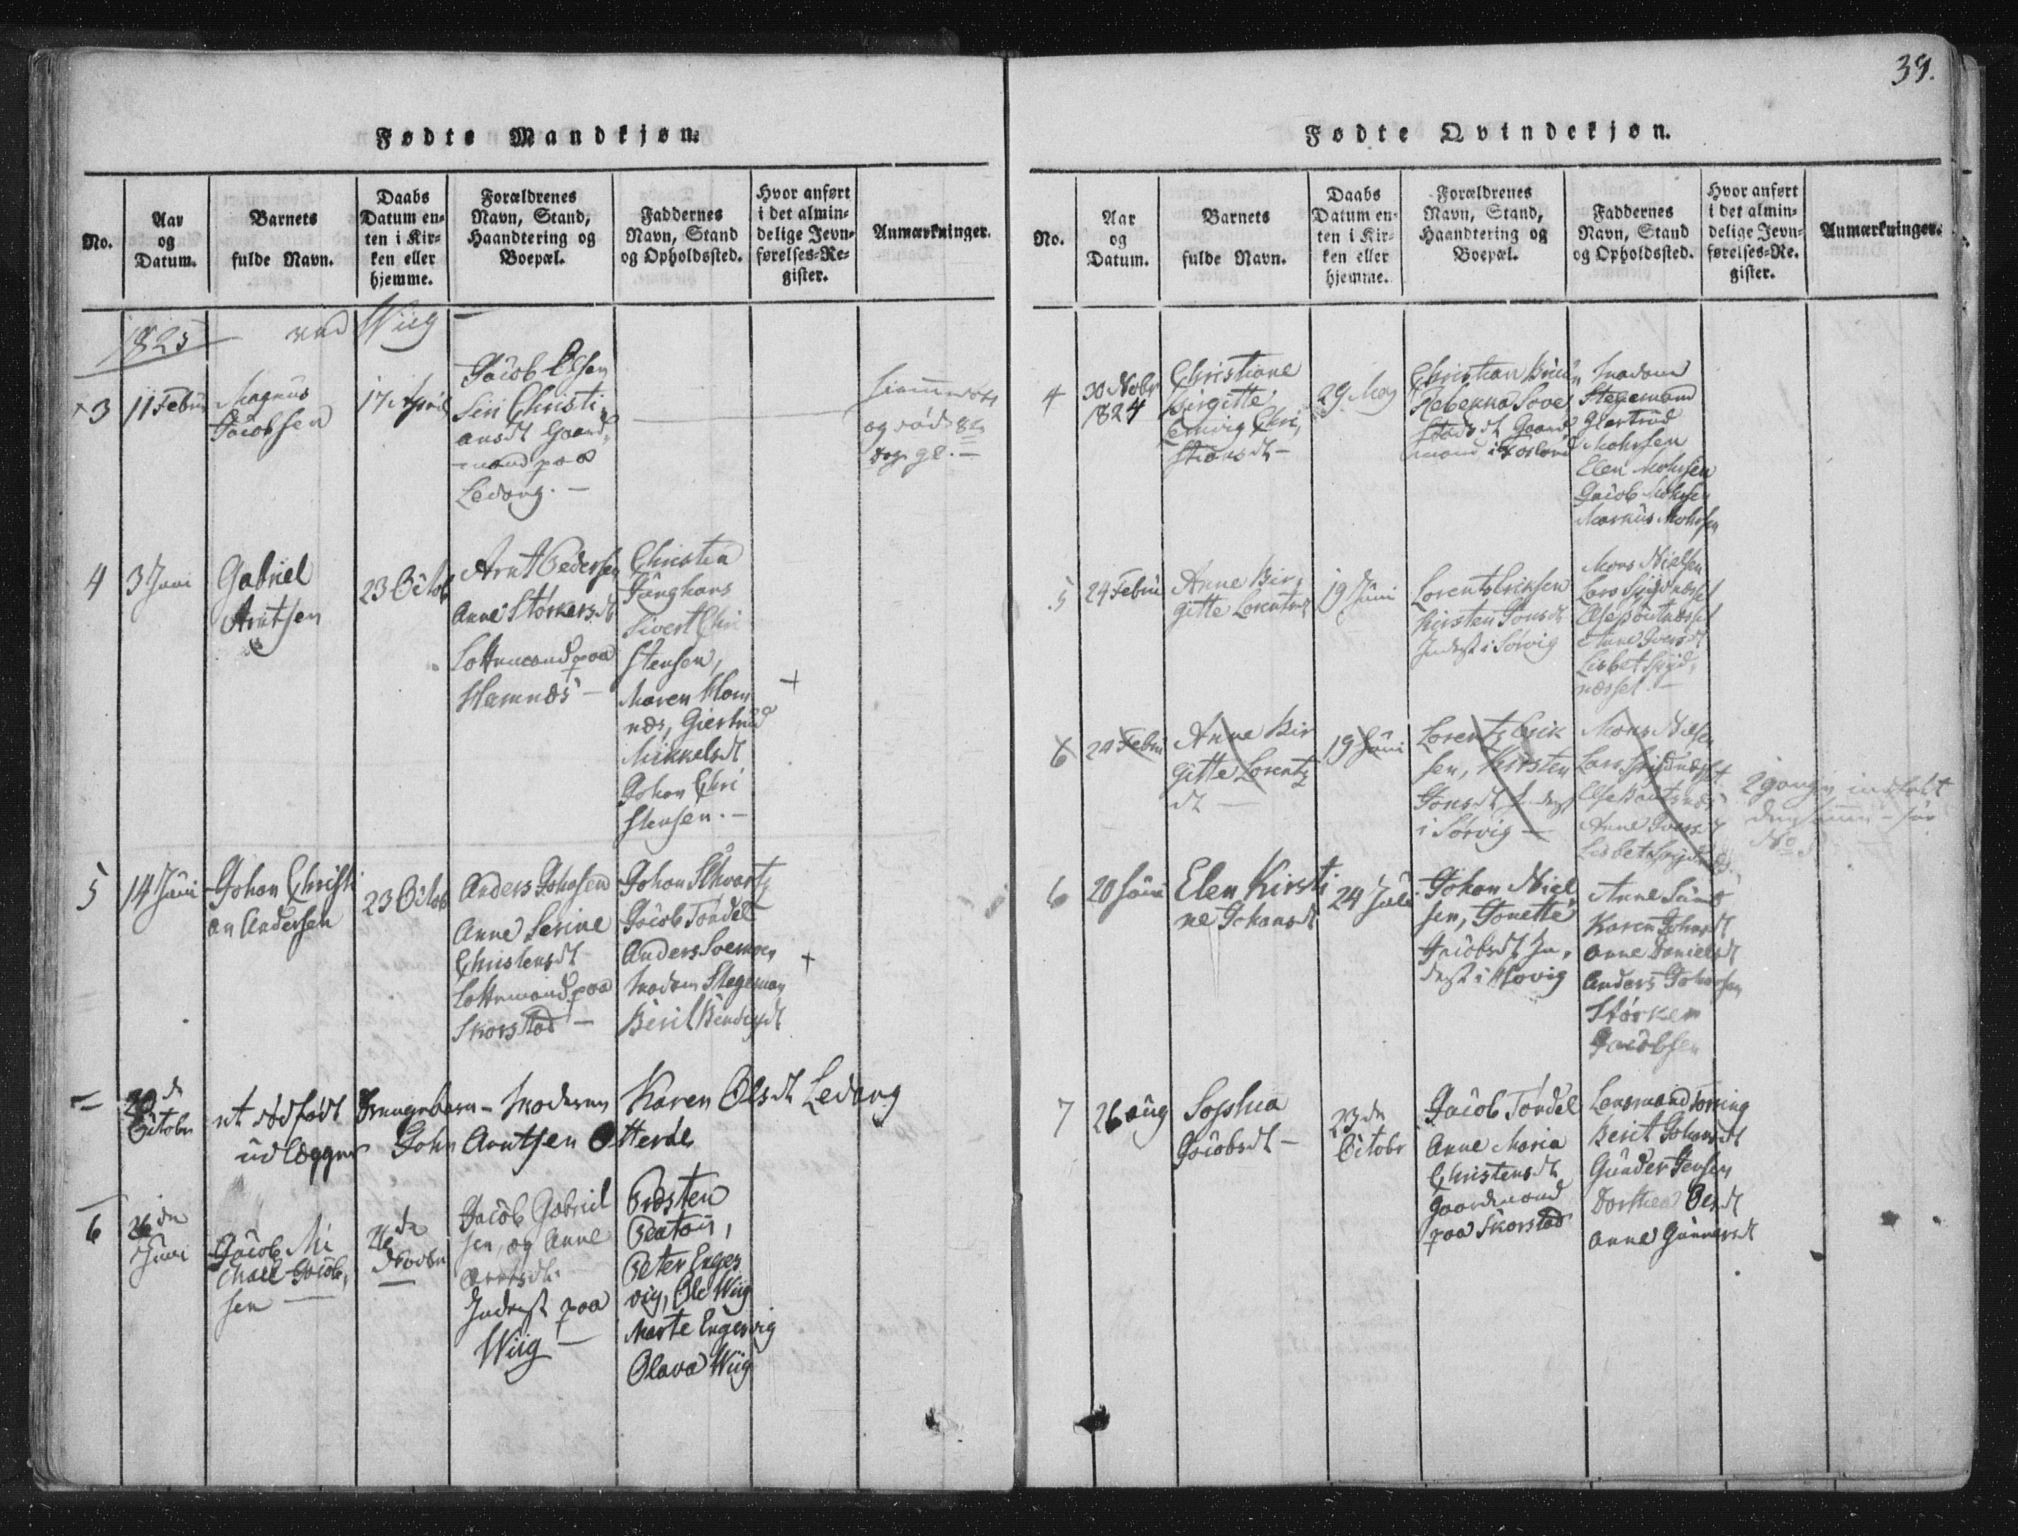 39.
Fødte Mandkjøn.
No.
Aar
og
Datum.
Barnets
fulde Navn.
Daabs
Datum en-
ten i Kir-
ken eller
hjemme.
Forældrenes
Navn, Stand,
Haandtering og
Boepæl.
Faddernes
Navn, Stand
og Opholdssted.
Hvor anført
i det almin-
delige Jevn-
førelses-Re-
gister.
Anmærkninger.
1825 ved Wiig
3
11 Febru
Magnus
Jacobsen
17 April
Jacob Olsen
Siri Christi
ansdt Gaard
mand paa
Ledang. —
hiemmedøbt
og død 8
dage gl. —
4
3 Juni
Gabriel
Arntsen
23 Octob
Arnt Pedersen
Anne Størkersdt
Lottemand paa
Hamnæs —
Christen
Fanghans
Sivert Chri
stensen,
Maren Hom
næs, Giertrud
Mikkelsdt
Johan Chri
stensen. —
+
5
14 Juni
Johan Christi
an Andersen
23 Octob
Anders Johnsen
Anne Serine
Christensdt
Lottemand paa
Skorstad —
Johan Schwartz
Jacob Tørdel
Anders
Madam Stegeman
Berit
+
—
20 de
Octobr
et dødfødt Drengebarn — Moderen Karen Olsdt Ledang
udlægger John Arntsen Otterøe
6
26 de
Juni
Jacob Mi
chael Jacob
sen —
26 de
Jacob Gabriel
sen, og Anne
Inderst paa
Wiig —
Presten
Peter Enges
vig, Ole Wiig
Marte Engesvig
Olava Wiig
Fødte Qvindekjøn.
No.
Aar
og
Datum.
Barnets
fulde Navn.
Daabs
Datum en-
ten i Kir-
ken eller
hjemme.
Forældrenes
Navn, Stand,
Haandtering og
Boepæl.
Faddernes
Navn, Stand
og Opholdssted.
Hvor anført
i det almin-
delige Jevn-
førelses-Re-
gister.
Anmærkninger.
4
30 Nobr
1824
Christiane
Birgitte
Lemvig Chri,
stiansdt —
29 May
Christian
Rebekka
Gaard
mand i
Madam
Stegemand
Giertrud
Mohrsen
Elen Mohrsen
Jacob Mohrsen
Markus Mohrsen
5
24 Febru
Anne Bir
gitte Lorentzdt
19 Juni
Lorents Eriksen
Kirsten Jonsdt
Inderst i Sørvig
Mons Nielsen
Lars Spydnæsset
Anne Iversdt
Lisbet Spyd,
næsset. —
6
24 Febru
Anne Bir
gitte Lorentz
dt —
19 Juni
Lorentz Erik
sen, Kirsten
Jonsdt Inderst
i Sørvig —
Mons Nielsen
Lars Spydnæsset
Anne Iversdt
Lisbet Spydnæs
2 gange indført
den samme — see
No 5
6
20 Juni
Elen Kirsti
ne Johansdt
24 Juli
Johan Niel
sen, Jonette
Jacobsdt In,
derst i Hovig
Anne Sund
Karen Johnsdt
Anne Danielsdt
Anders Johansen
Størker
Jacobsen
7
26 Aug
Sophia
Jacobsdt —
23 de
Octobr
Jacob Tørdel
Anne Maria
Christensdt
Gaardmand
paa Skorstad
Lensmand Tørring
Berit Johansdt
Gunder Jensen
Dorthea Olsdt
Anne Gunnersdt